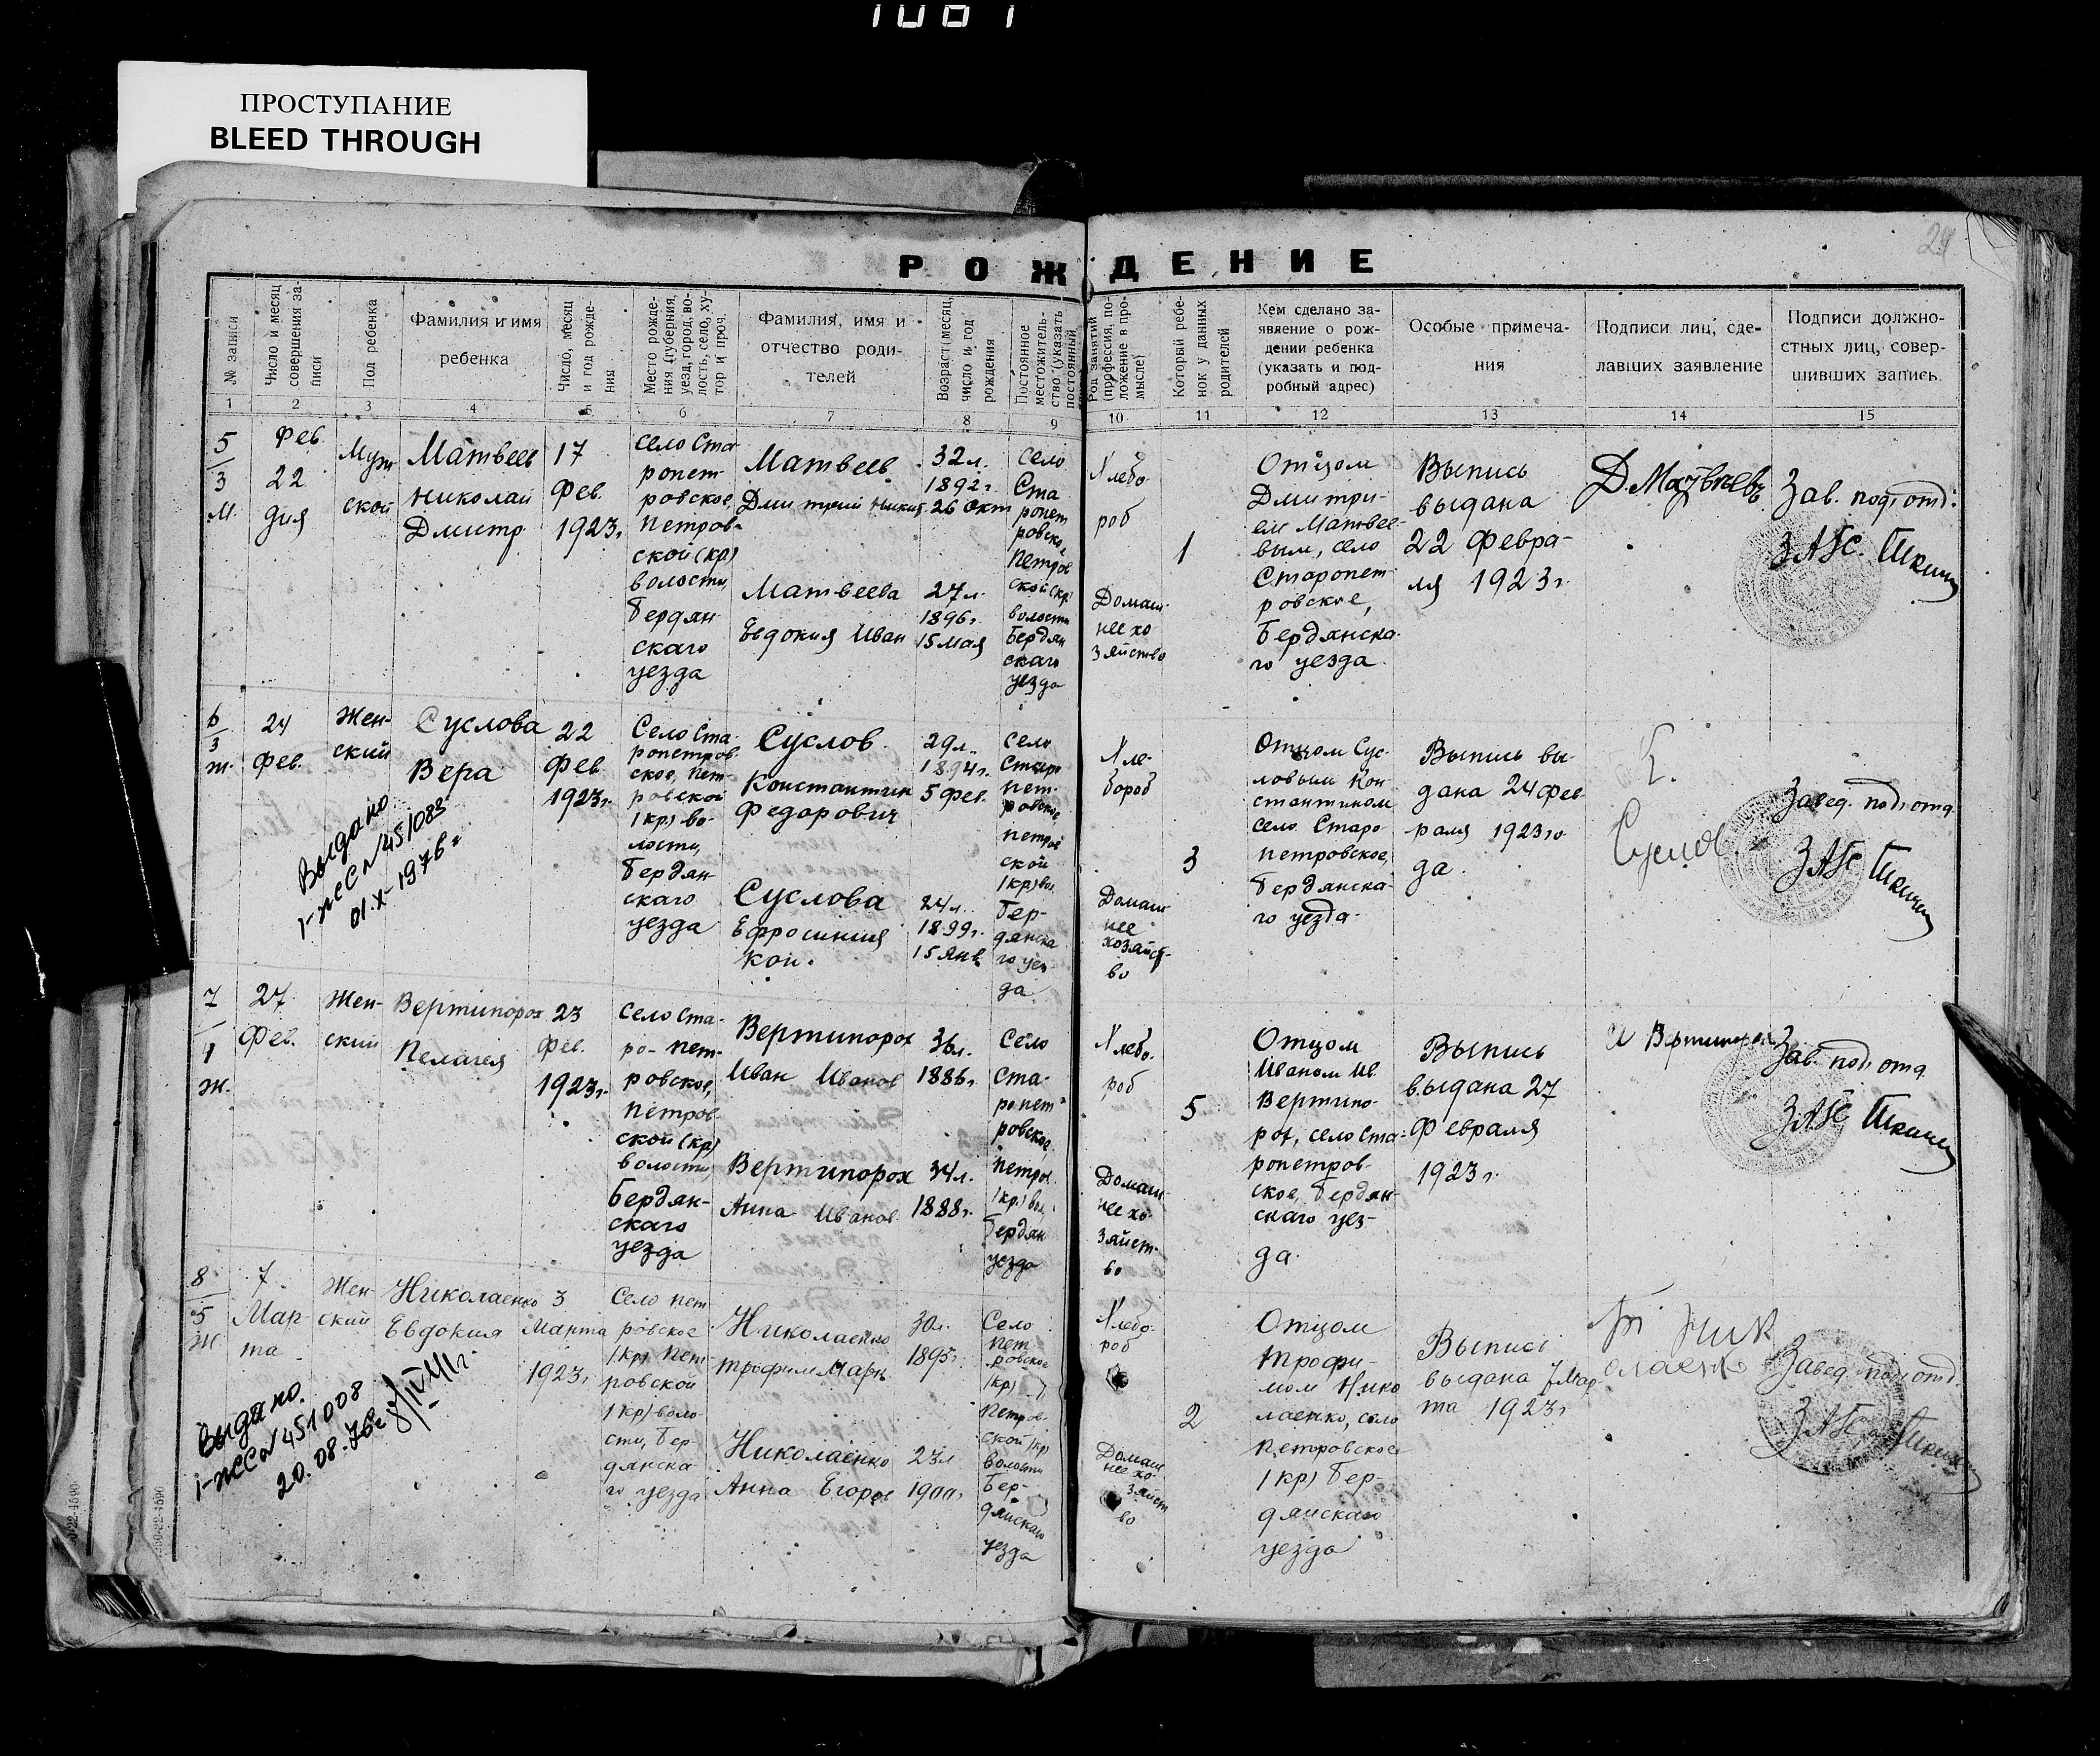 1081
ПРОСТУПАНИЕ
BLEED THROUGH
29
РОЖДЕНИЕ
№ записи
Число и месяц
совершения за-
писи
Пол ребенка
Фамилия и имя
ребенка
Число, месяц
и год рожде-
ния
Место рожде-
ния (губерния,
уезд, город, во-
лость, село, ху-
тор и проч.
Фамилия, имя и
отчество роди-
телей
Возраст (месяц,
число и год
рождения
Постоянное
местожитель-
ство (указать
постоянный
Род занятий
(профессия, по-
ложение в про-
мысле)
Который ребе-
нок у данных
родителей
Кем сделано за-
явление о рож-
дении ребенка
(указать и под-
робный адрес)
Особые примеча-
ния
Подписи лиц, сде-
лавших заявление
Подписи должно-
стных лиц, совер-
шивших запись.
1 2 3 4 5 6 7 8 9 10 11 12 13 14 15
5
3
М.
Фев
22
дня
Муж
ской
Матвеев
Николай
Дмитр
17
Фев.
1923г
село Ста
ропет-
ровское,
Петров-
ской (кр)
волости,
Бердян
скаго
уезда
Матвеев
Дмитрий Никит.
Матвеева
Евдокия Иван
32л.
1892г.
26 Окт
27л.
1896г.
15 мая
село
Ста
ропет
ровское
Петров
ской (кр)
волости
Бердян
скаго
уезда
Хлебо-
роб
Домаш-
нее хо
зяйство
1
Отцом
Дмитри-
ем Матвее-
вым, село
Старопет
ровское,
Бердянска-
го уезда.
Выпись
выдана
22 Февра-
ля 1923г.
Д. Матвеевъ
Зав. под'отд:
ЗАГС.
6
3
ж.
24
Фев.
Жен-
ский
Суслова
Вера
22
Фев
1923г.
Село Ста-
ропетров
ское, Пет-
ровской
(кр) во-
лости,
Бердян-
скаго
уезда
Суслов.
Константин
Федорович
Суслова
Ефросиния
Кон.
29л.
1894г.
5 Фев.
24л.
1899г.
15 Янв
село
Старо
пет-
ровское,
Петров
ской
(кр) вол.
Бер-
дянска
го уез
да
Хле-
бороб
Домаш-
нее
хозяйст-
во
3
Отцом Сус-
ловым Кон
стантином
село Старо
петровское,
Бердянска-
го уезда.
Выпись вы-
дана 24 фев
раля 1923 го
да.
К.
Суслов
Завед. под'отд
ЗАГС
Выдано
I-ЖС № 451083
01.X-1976г
7
4
Ж.
27
Фев.
Жен-
ский
Вертипорох
Пелагея
23
Фев.
1923г.
село Ста-
ро-пет-
ровское,
Петров
ской (кр)
волости,
Бердян-
скаго
уезда
Вертипорох
Иван Иванов
Вертипорох
Анна Иванов.
36л.
1886г.
34л.
1888г.
Село
Ста-
ропет-
ровское
Петров
(кр) вол.
Бердян
уезда
Хлебо-
роб
Домаш-
нее хо-
зяйст-
во
5
Отцом
Иваном Ив.
Вертипо-
рох, село Ста-
ропетров-
ское, Бердян-
скаго уез-
да.
Выпись
выдана 27
Февраля
1923г.
И Вертипорох
Зав. под'отд
ЗАГС
8
5
Ж
7
Мар
та
Жен-
ский
Николаенко
Евдокия
3
Марта
1923г
Село Пет
ровское
(кр) Пет-
ровской
(кр) воло-
сти, Бер-
дянска-
го уезда
Николаенко
Трофим Марк.
Николаенко
Анна Егоров
30л.
1893г.
23л
1900г
Село
Пет
ровское
(кр)
Петров-
ской (кр)
волости
Бер-
дянскаго
уезда
Хлебо-
роб
Домаш
нее хо-
зяйст
во
2
Отцом
Трофи-
мом Нико
лаенко, село
Петровское
(кр) Бер-
дянскаго
уезда
Выпись
выдана 7 Мар-
та 1923г
Т Ник
олаенко
Завед. под'отд.
ЗАГС
Выдано.
I-ЖС № 451008
20.08.76г